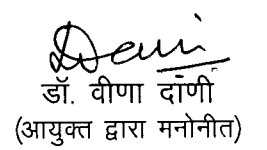 Dani
डॉ. वीणा दाणी
(आयुक्त द्वारा मनोनीत)